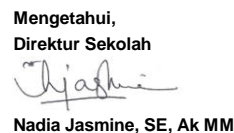 Mengetahui,
Direktur Sekolah
Nadia Jasmine, SE, Ak MM